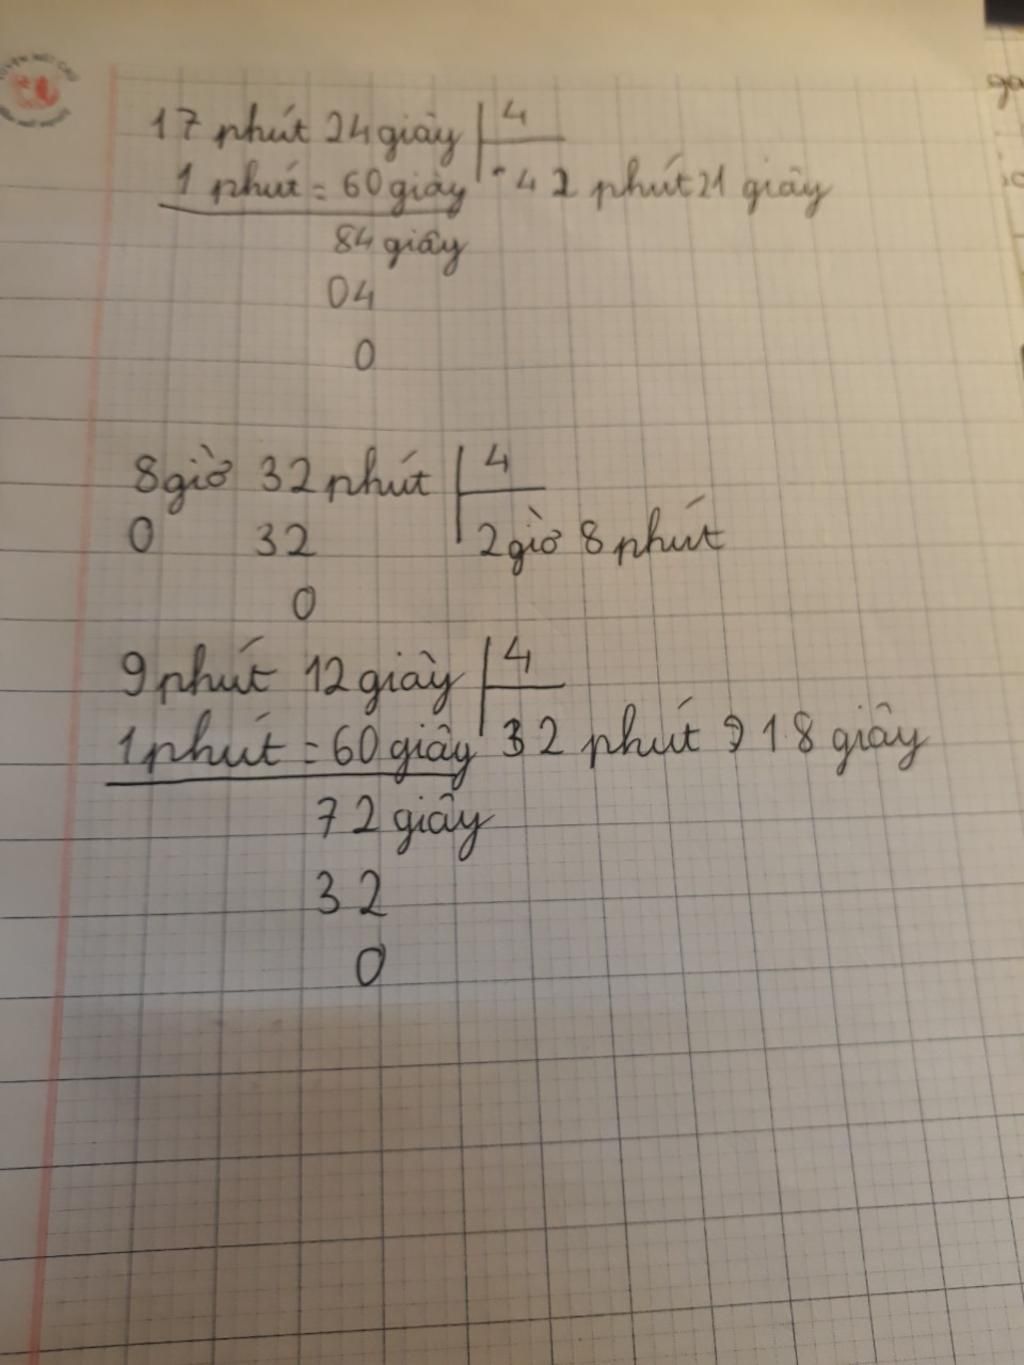 17 phút 24 giây 4
1 phút = 60 giây 4 2 phút 21 giây
84 giây
04
0
8 giờ 32 phút 4
0 32 2 giờ 8 phút
0
9 phút 12 giây 4
1 phút = 60 giây 32 phút 18 giây
72 giây
32
0